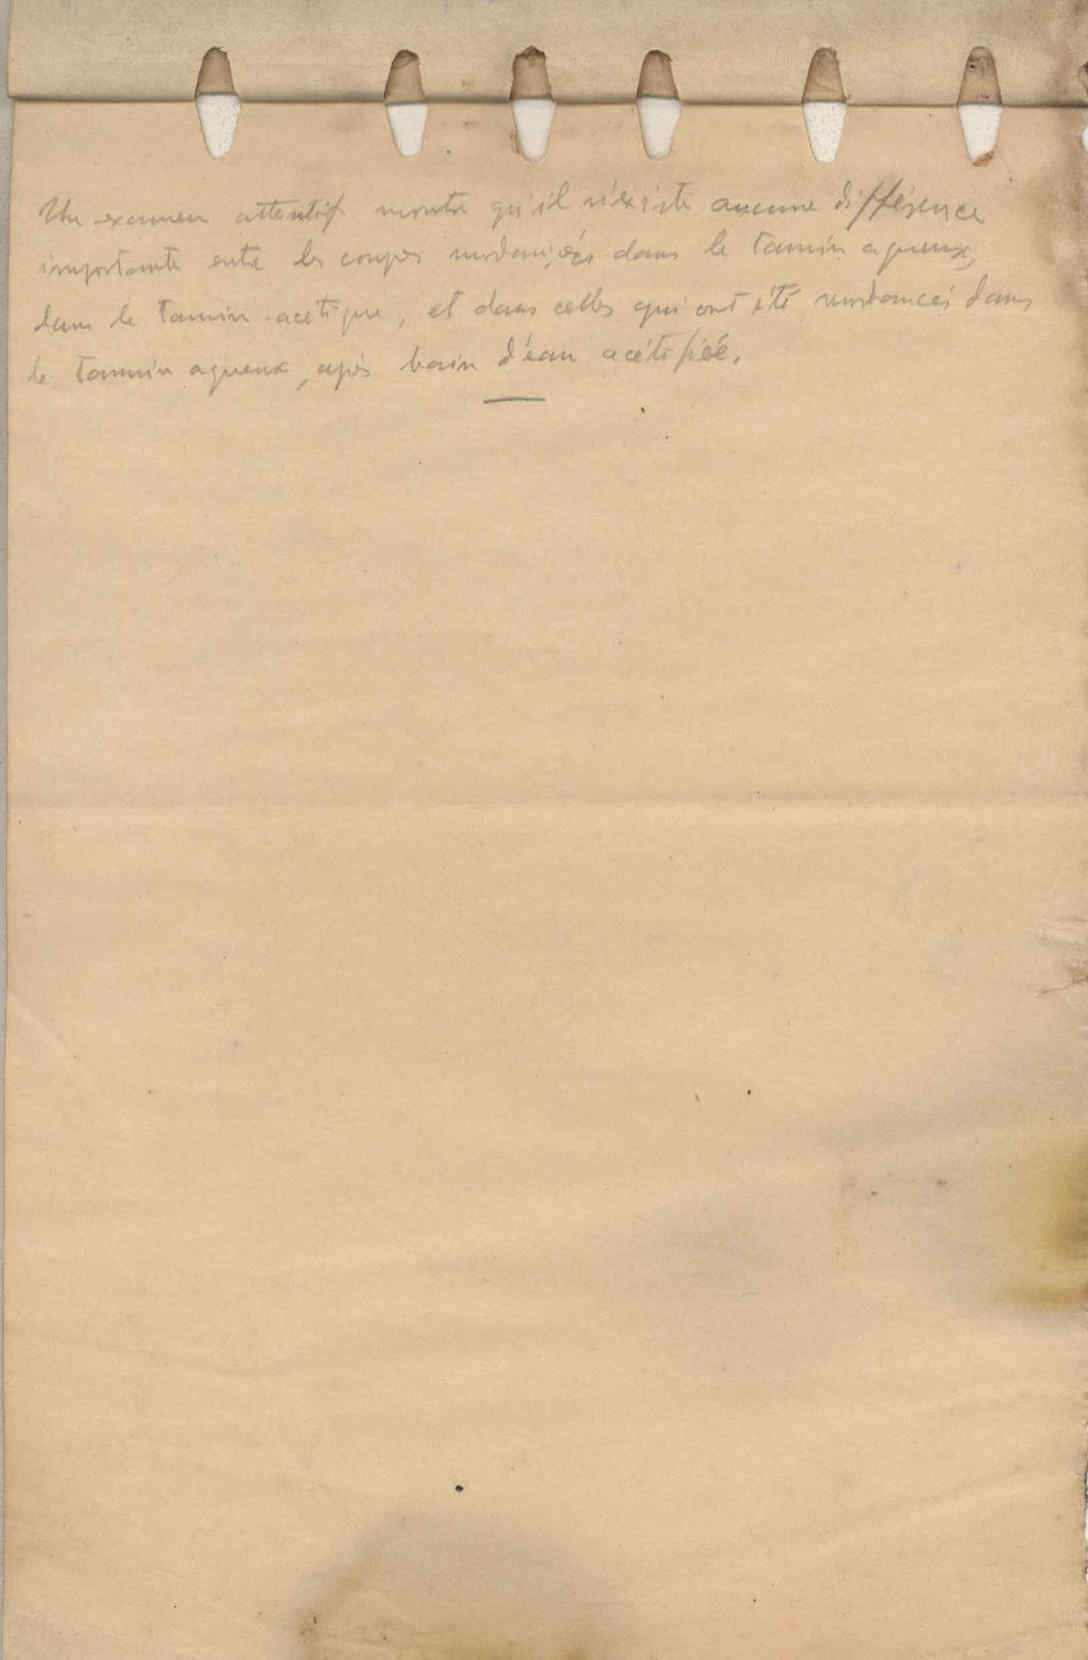 Un examen attentif montre qu'il n'éxiste aucune différence
importante entre les coupes mordancées dans le tannin aqueux,
dans le tannin acétique, et dans celles qui ont été mordancées dans
le tannin aqueux, après bain d'éau acétifiée.